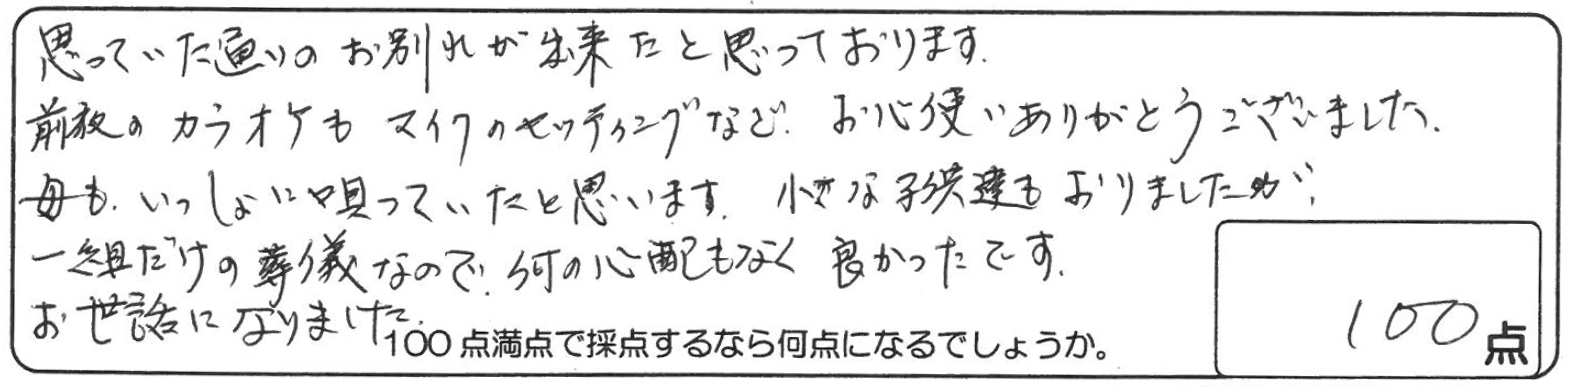 思っていた通りのお別れが出来たと思っております。
前夜のカラオケもマイクのセッティングなど、お心使いありがとうございました。
母も、いっしょに唄っていたと思います。小さな子供達もおりましたが、
一組だけの葬儀なので、何の心配もなく良かったです。
お世話になりました。
100点満点で採点するなら何点になるでしょうか。
100点